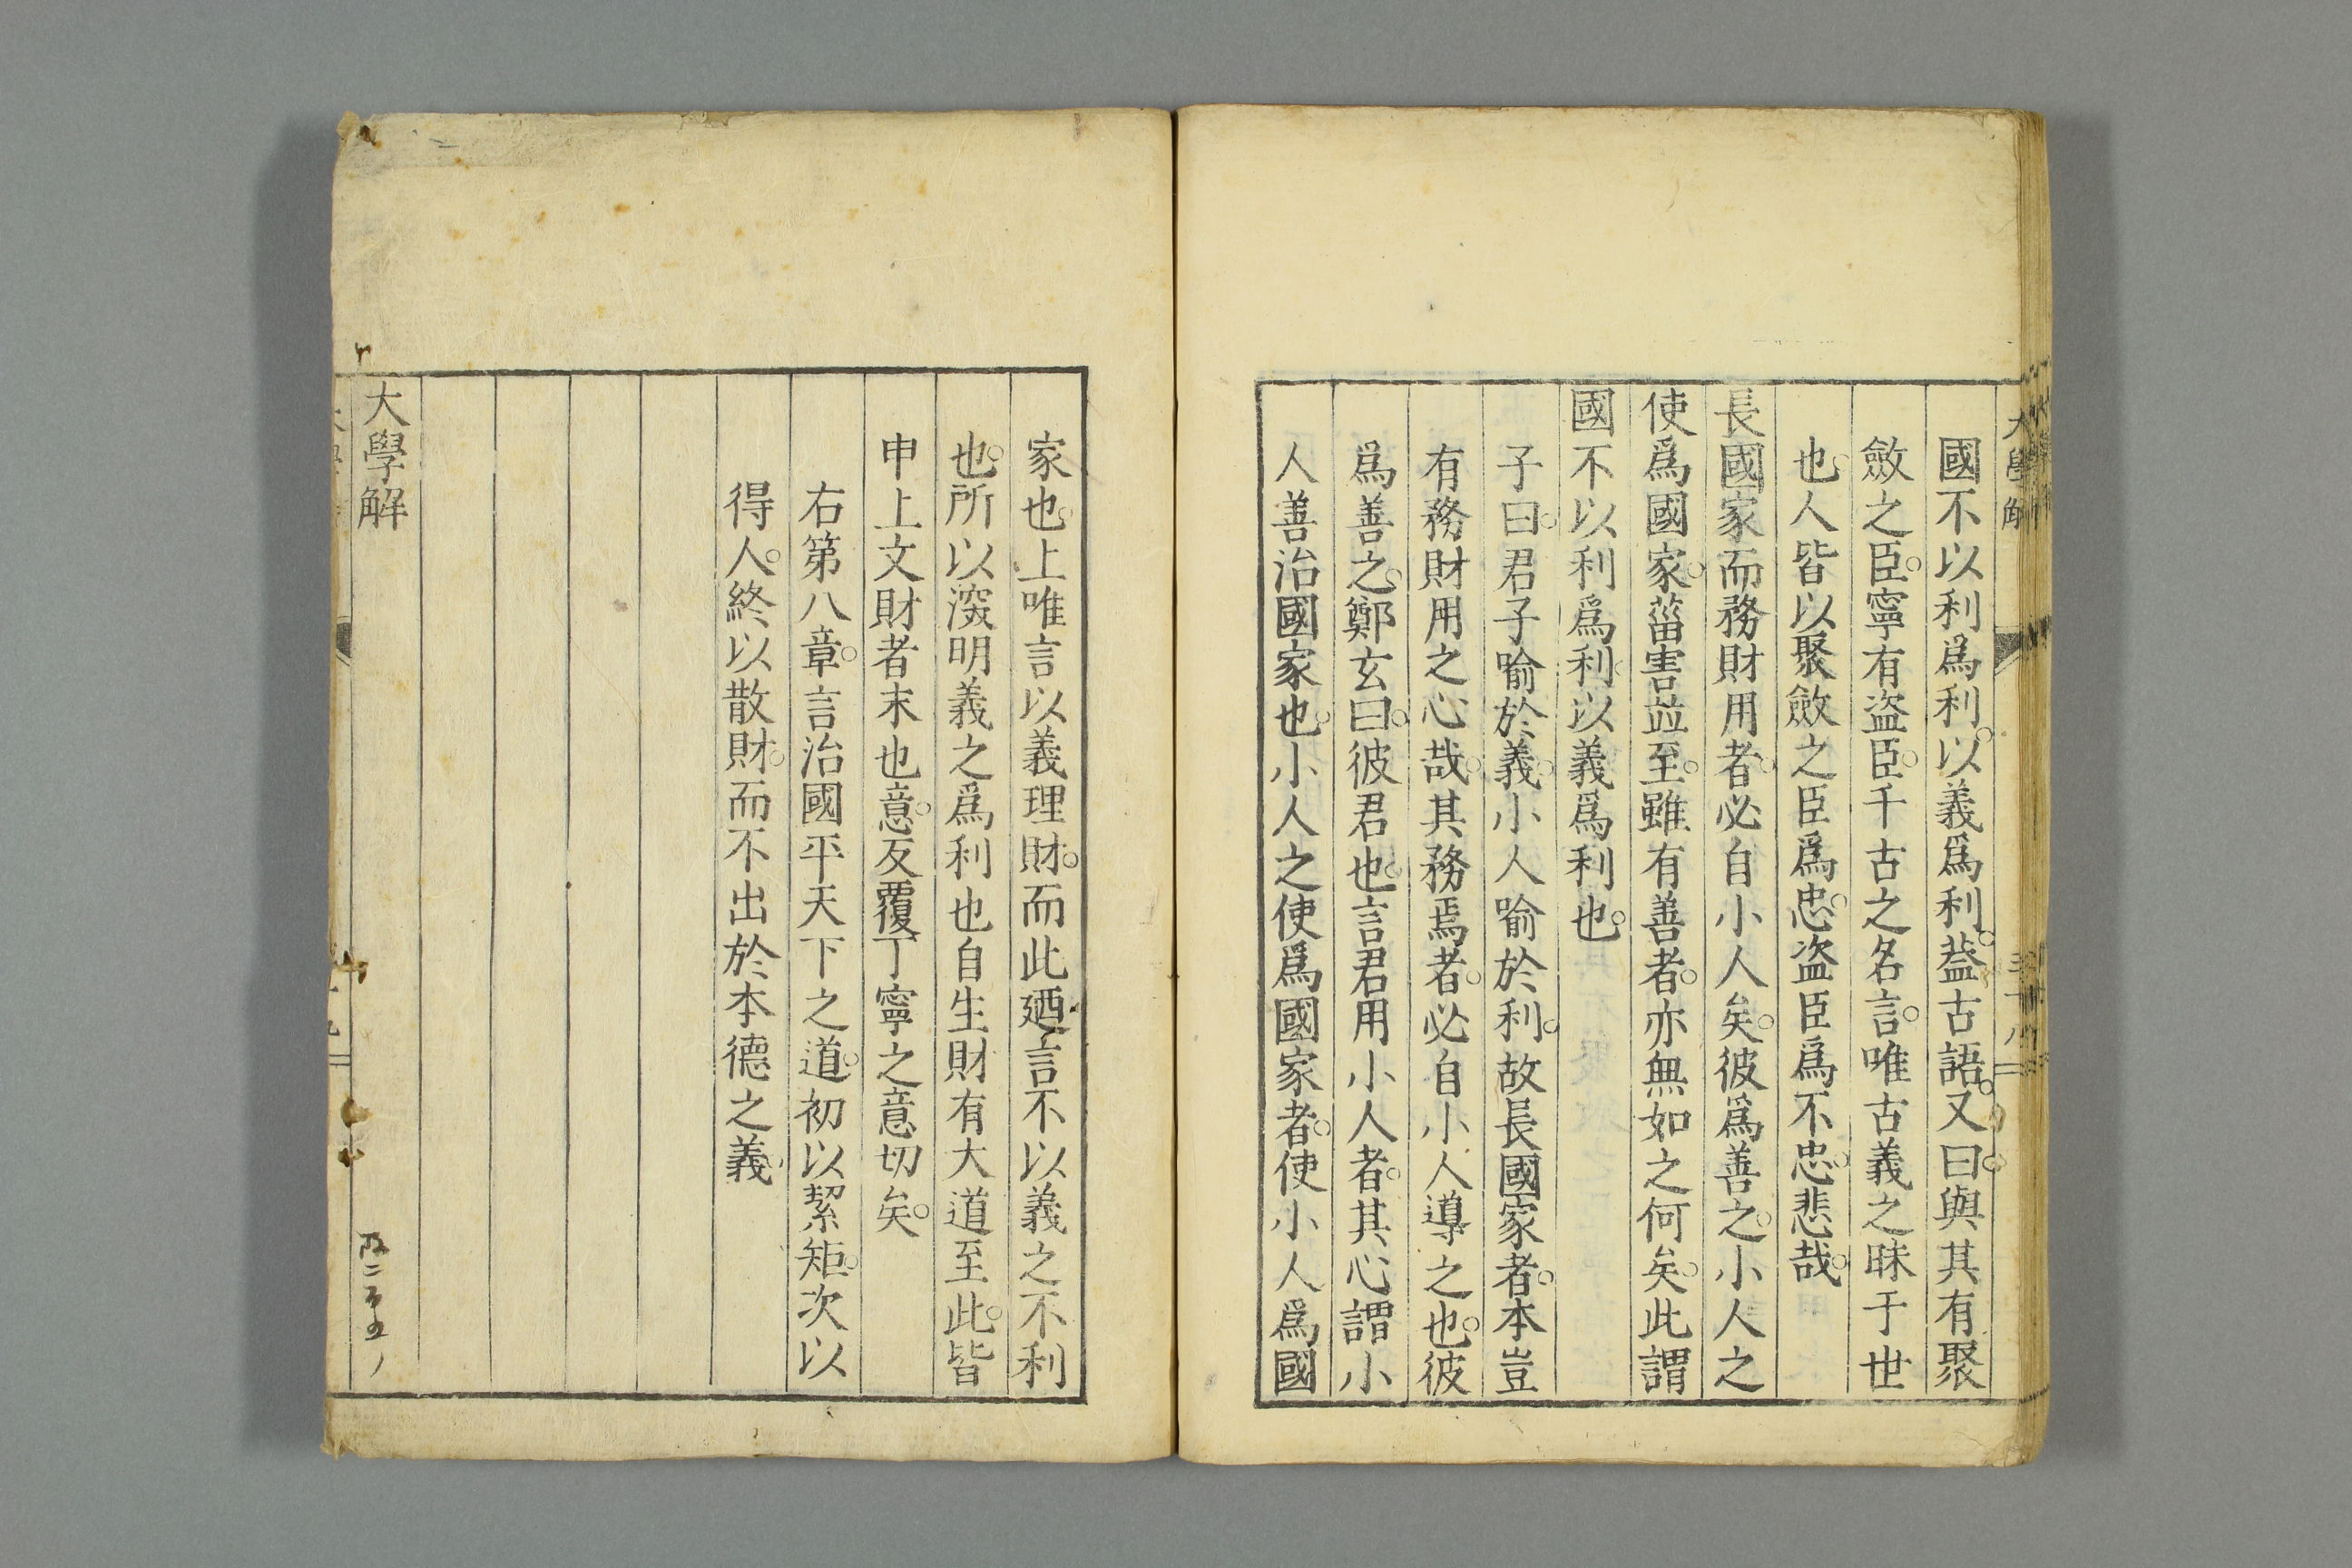 大學解
國不以利爲利以義爲利葢古語又曰與其有聚
斂之臣寧有盜臣千古之名言唯古義之昧于世
也人皆以聚斂之臣爲忠盜臣爲不忠悲哉
長國家而務財用者必自小人矣彼爲善之小人之
使爲國家菑害竝至雖有善者亦無如之何矣此謂
國不以利爲利以義爲利也
子曰君子喻於義小人喻於利故長國家者本豈
有務財用之心哉其務焉者必自小人導之也彼
爲善之鄭玄曰彼君也言君用小人者其心謂小
人善治國家也小人之使爲國家者使小人爲國
家也上唯言以義理財而此廼言不以義之不利
也所以深明義之爲利也自生財有大道至此皆
申上文財者末也意反覆丁寧之意切矣
右第八章言治國平天下之道初以絜矩次以
得人終以散財而不出於本德之義
大學解